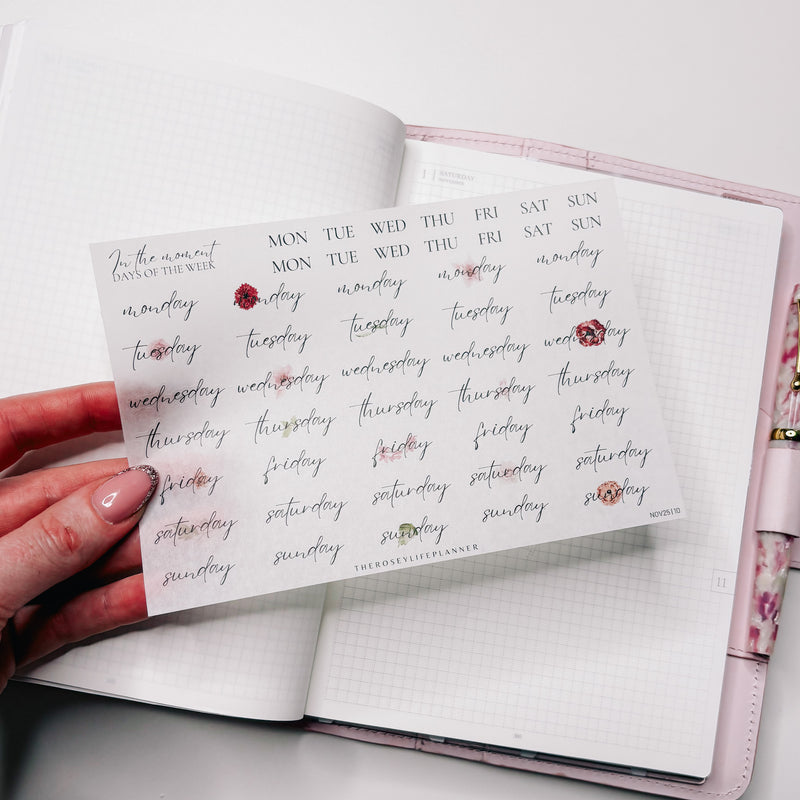 In the moment
DAYS OF THE WEEK
MON TUE WED THU FRI SAT SUN
MON TUE WED THU FRI SAT SUN
monday monday monday monday monday
tuesday tuesday tuesday tuesday tuesday
wednesday wednesday wednesday wednesday wednesday
thursday thursday thursday thursday thursday
friday friday friday friday friday
saturday saturday saturday saturday saturday
sunday sunday sunday sunday sunday
THEROSEYLIFEPLANNER
NOV25|10
1 SATURDAY
NOVEMBER
11